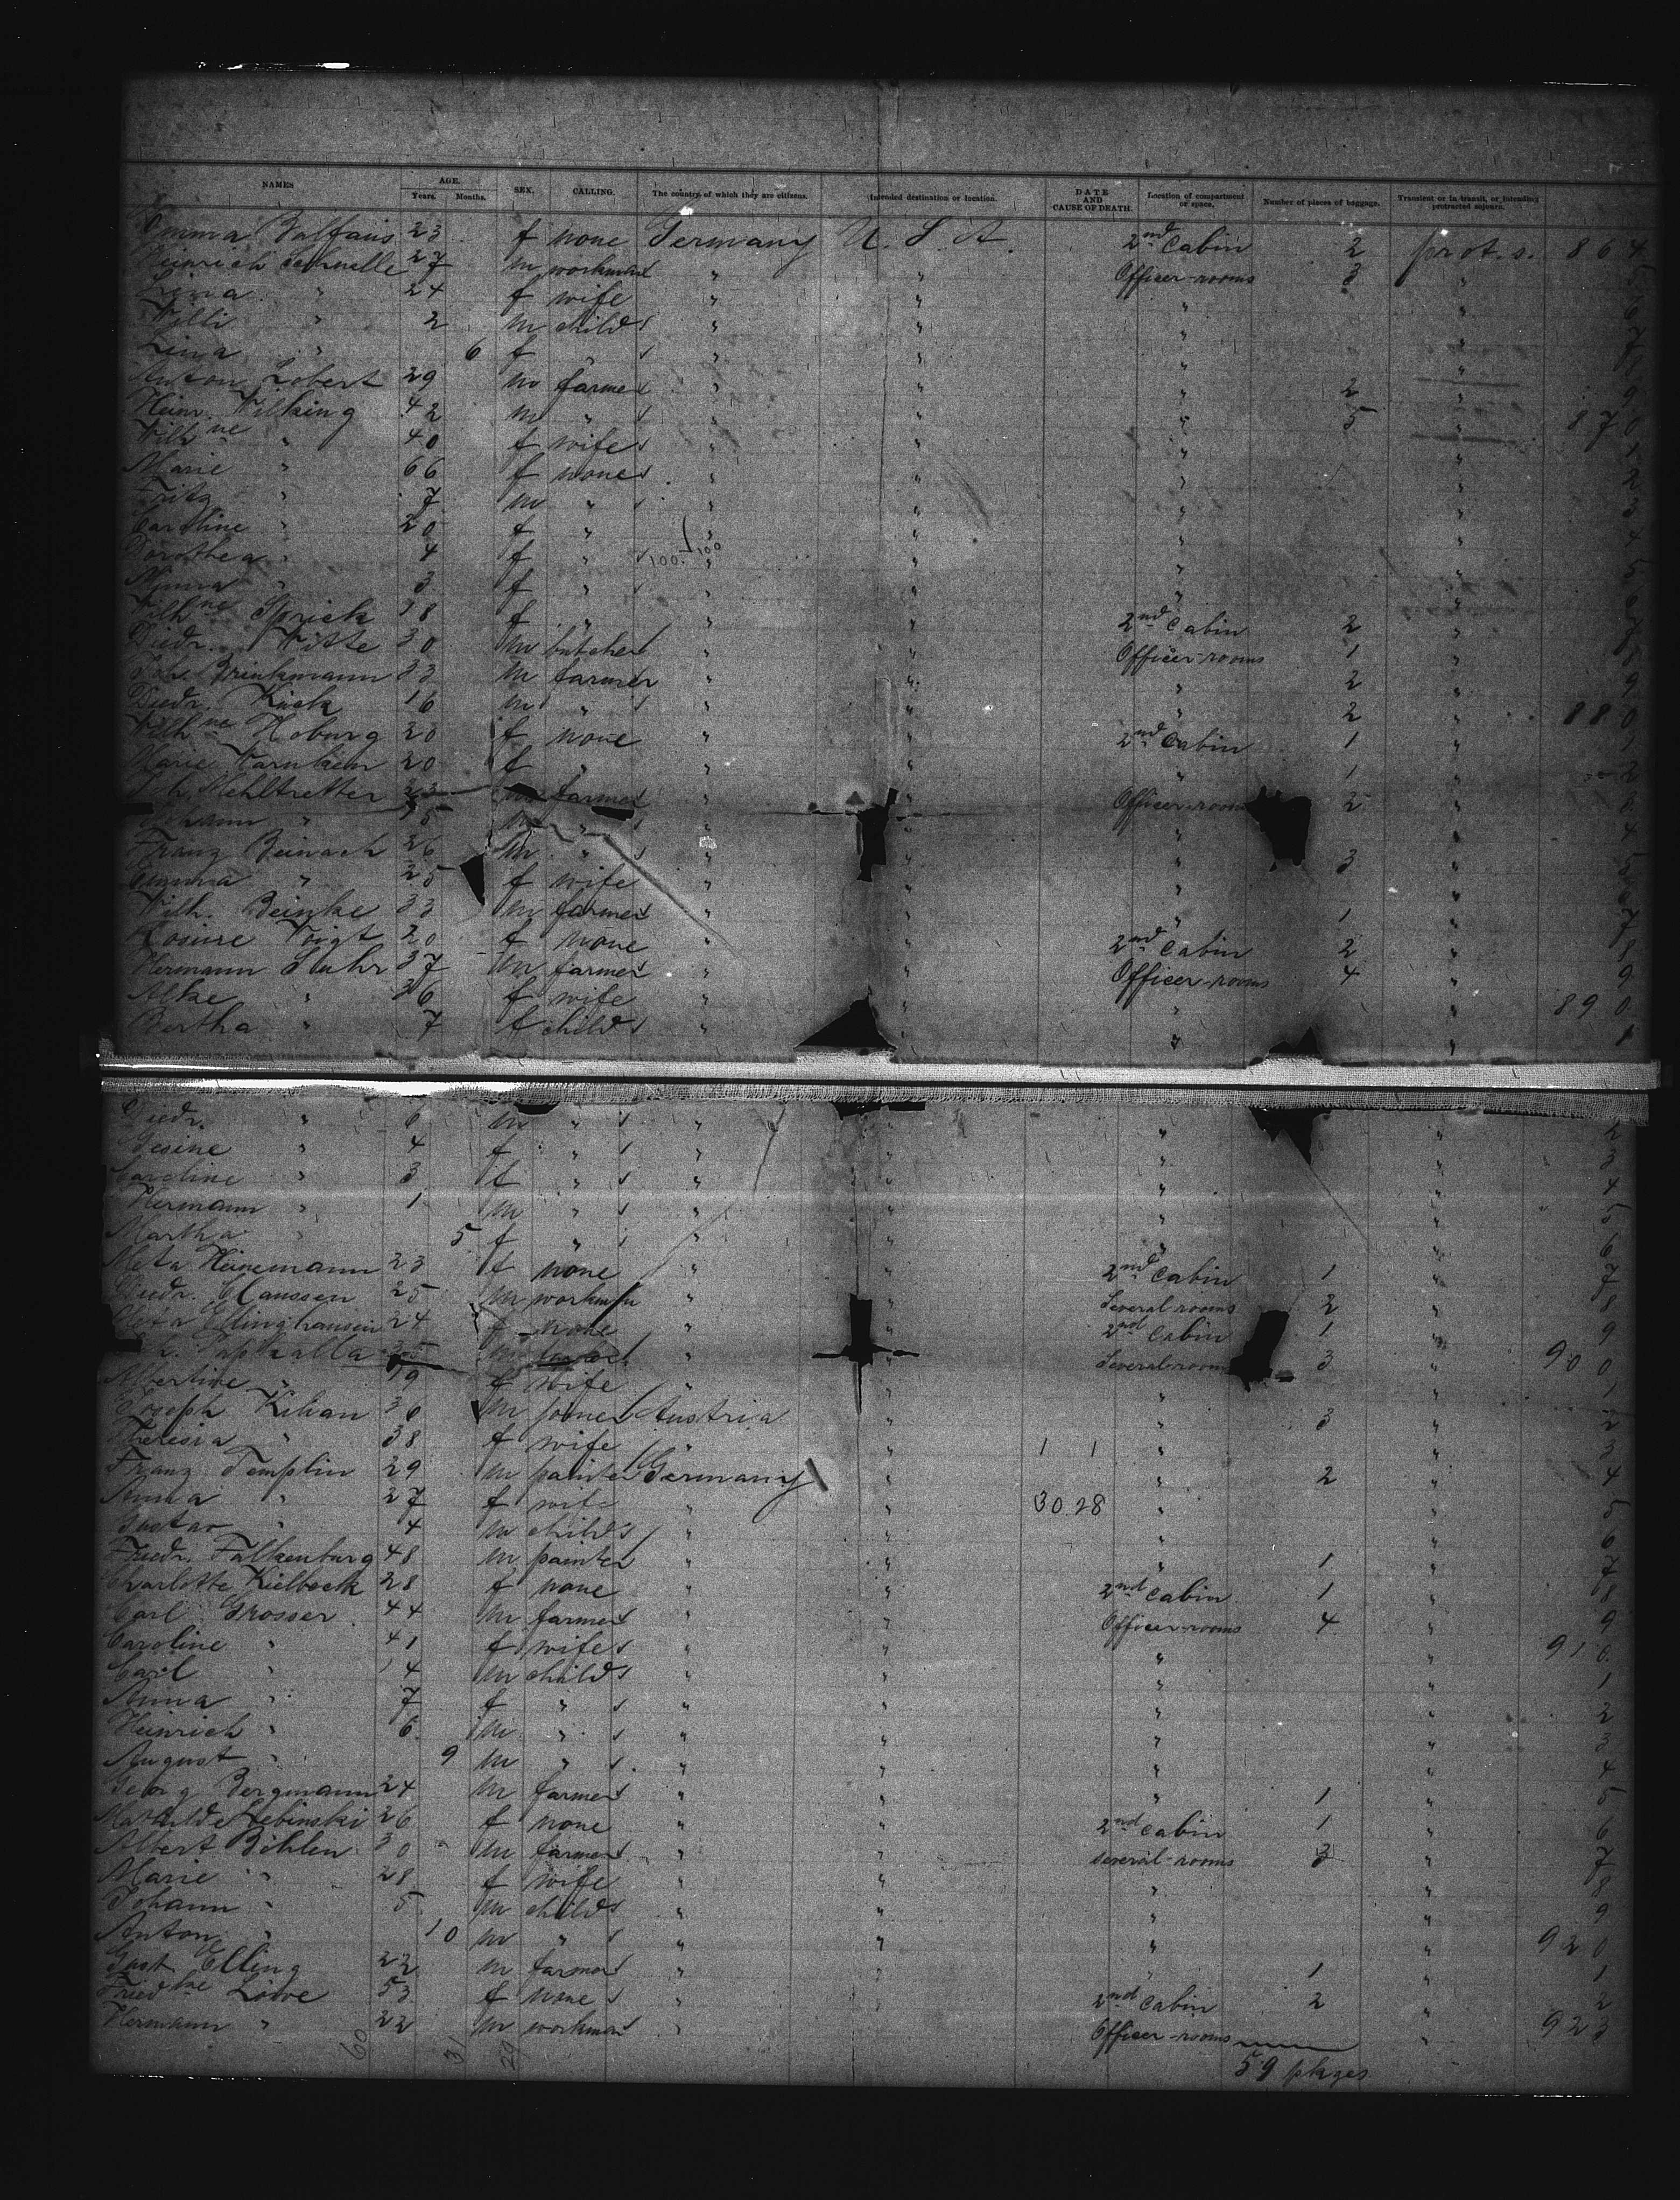 NAMES AGE. Years. Months. SEX. CALLING. The country of which they are citizens. Intended destination or location. DATE AND CAUSE OF DEATH. Location of compartment or space. Number of pieces of baggage. Transient or in transit, or intending protracted sojourn.
Emma 23 f none Germany U. S. A. 2nd Cabin 2 prot. s. 864
Heinrich Schnelle 27 m workman " " Officer-rooms 3 " 5
Lina " 24 f wife " " " " 6
Willi " 2 m child " " " " 7
Lina " 6 f " " " " " 8
Anton Lobert 29 m farmer " " " 2 " 9
Heinr. Wilking 42 m " " " " 5 " 870
Wilhne " 40 f wife " " " " 1
Marie " 66 f none " " " " 2
Fritz " 7 m " " " " " 3
Caroline " 20 f " " " " " 4
Dorothea " 4 f " 100 100 " " " " 5
Minna " 3 f " " " " " 6
Wilhne Strick 18 f " " " 2nd Cabin 2 " 7
Diedr. Witte 30 m butcher " " Officer-rooms 1 " 8
Joh. Brinkmann 33 m farmer " " " 2 " 9
Diedr. Kück 16 m " " " " 2 " 880
Wilhne Hoburg 20 f none " " 2nd Cabin 1 " 1
Marie Warnken 20 f " " " " 1 " 2
Joh. Mehltretter 23 m farmer " " Officer-rooms 2 " 3
Johann " m " " " " " 4
Franz Beinach 26 m " " " " 3 " 5
Emma " 25 f wife " " " " 6
Wilh. Beinke 33 m farmer " " " 1 " 7
Rosine Voigt 20 f none " " 2nd Cabin 2 " 8
Hermann Suhr 37 m farmer " " Officer-rooms 4 " 9
Alke " 36 f wife " " " " 890
Bertha " 7 f child " " " " 1
Diedr. " 6 m " " " " 2
Gesine " 4 f " " " " " 3
Caroline " 3 f " " " " " 4
Hermann " 1 m " " " " " 5
Martha " 5 f " " " " " 6
Meta Heinemann 23 f none " " 2nd Cabin 1 " 7
Diedr. Claussen 25 m workman " " Several-rooms 2 " 8
Meta Ellinghausen 24 f none " " 2nd Cabin 1 " 9
m Several-rooms 3 " 900
Albertine " 19 f wife " " " " 1
Joseph Kilian 36 m joiner Austria " " 3 " 2
Theresia " 38 f wife " " 1 1 " " 3
Franz Templin 29 m painter Germany " " 2 " 4
Anna " 27 f wife " " 30.28 " " 5
Gustav " 4 m child " " " " 6
Friedr. Falkenburg 48 m painter " " " 1 " 7
Charlotte Kielbock 28 f none " " 2nd Cabin 1 " 8
Carl Grosser 44 m farmer " " Officer-rooms 4 " 9
Caroline " 41 f wife " " " " 910
Carl " 14 m child " " " " 1
Anna " 7 f " " " " " 2
Heinrich " 6 m " " " " " 3
August " 9 m " " " " " 4
Georg Bergmann 24 m farmer " " " 1 " 5
Mathilde Lebinski 26 f none " " 2nd Cabin 1 " 6
Albert Böhlen 30 m farmer " " several-rooms 3 " 7
Marie " 28 f wife " " " " 8
Johann " 5 m child " " " " 9
Anton " 10 m " " " " " 920
Gust. Elling 22 m farmer " " " 1 " 1
Friedrike Löwe 53 f none " " 2nd Cabin 2 " 2
Hermann " 22 m workman " Officer-rooms " 923
60 31 29 59 pkges